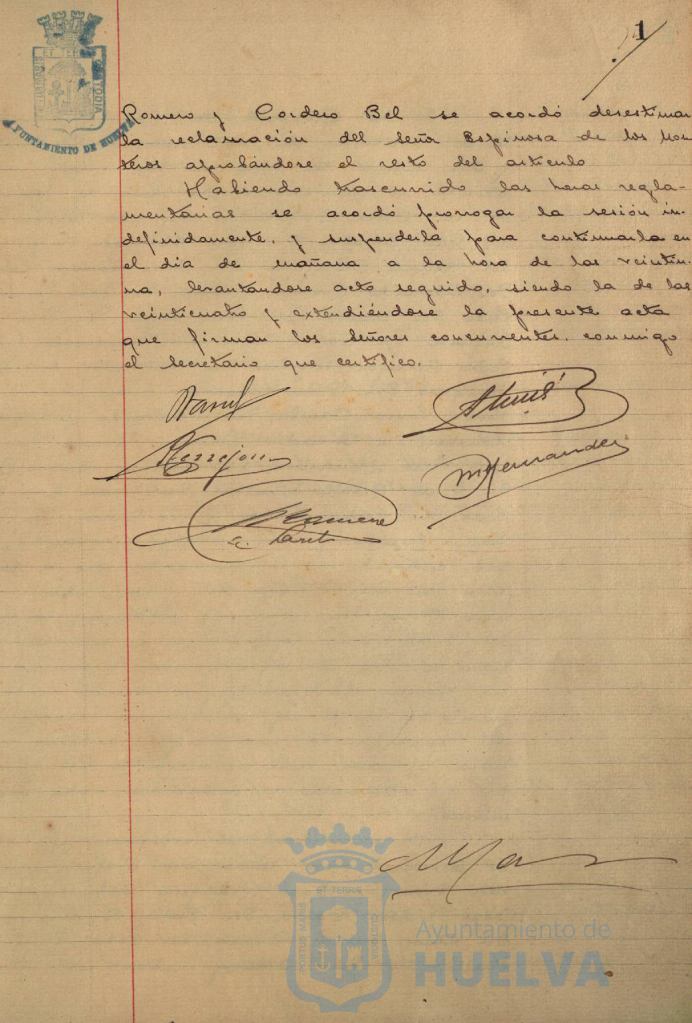 1
AYUNTAMIENTO DE HUELVA
Romero y Cordero Bel se acordó desestimar
la reclamación del señor Espinosa de los Mon
teros aprobándose el resto del artículo
Habiendo trascurrido las horas regla-
mentarias se acordó prorrogar la sesión in-
definidamente, y suspenderla para continuarla en
el día de mañana a la hora de las veintiu-
na, levantándose acto seguido, siendo la de las
veinticuatro y extendiéndose la presente acta
que firman los señores concurrentes, conmigo
el secretario que certifico.
Terrejon
M Hernandez
PORTUS MARIS ET TERRE CUSTODIA
Ayuntamiento de
HUELVA